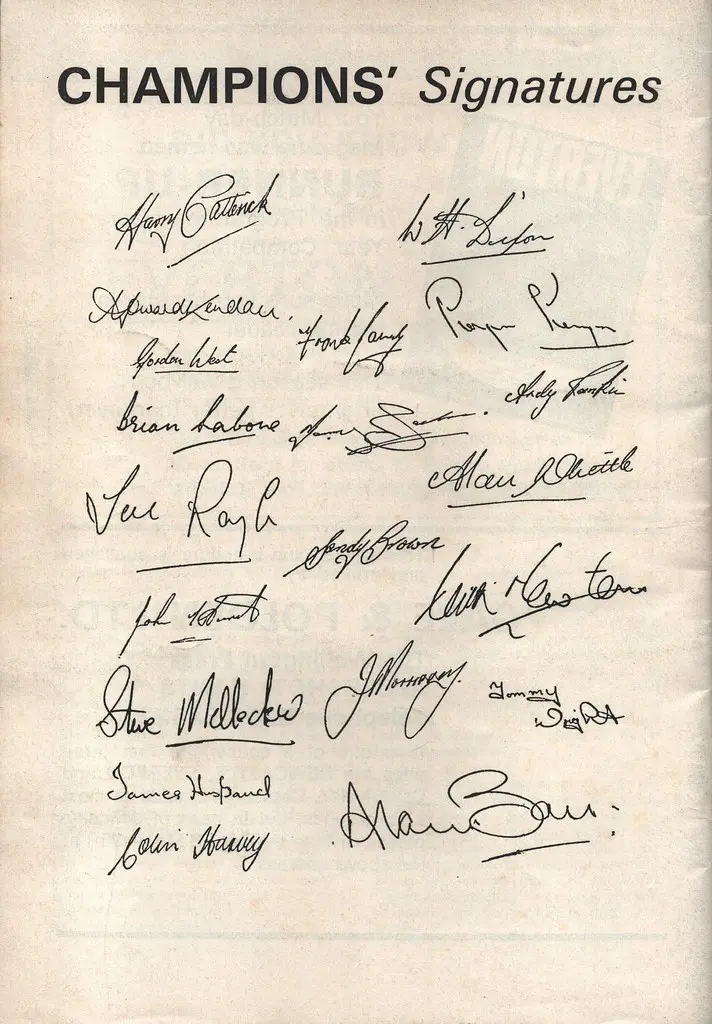 CHAMPIONS' Signatures
Harry Catterick
W H. Dixon
Howard Kendall.
Frank Darcy
Gordon West
Andy Rankin
Brian Labone
Alan Whittle
Joe Royle
Sandy Brown
Keith Newton
John Hurst
J Morrissey.
Steve Melledew
Tommy
Wright
James Husband
Alan Ball.
Colin Harvey